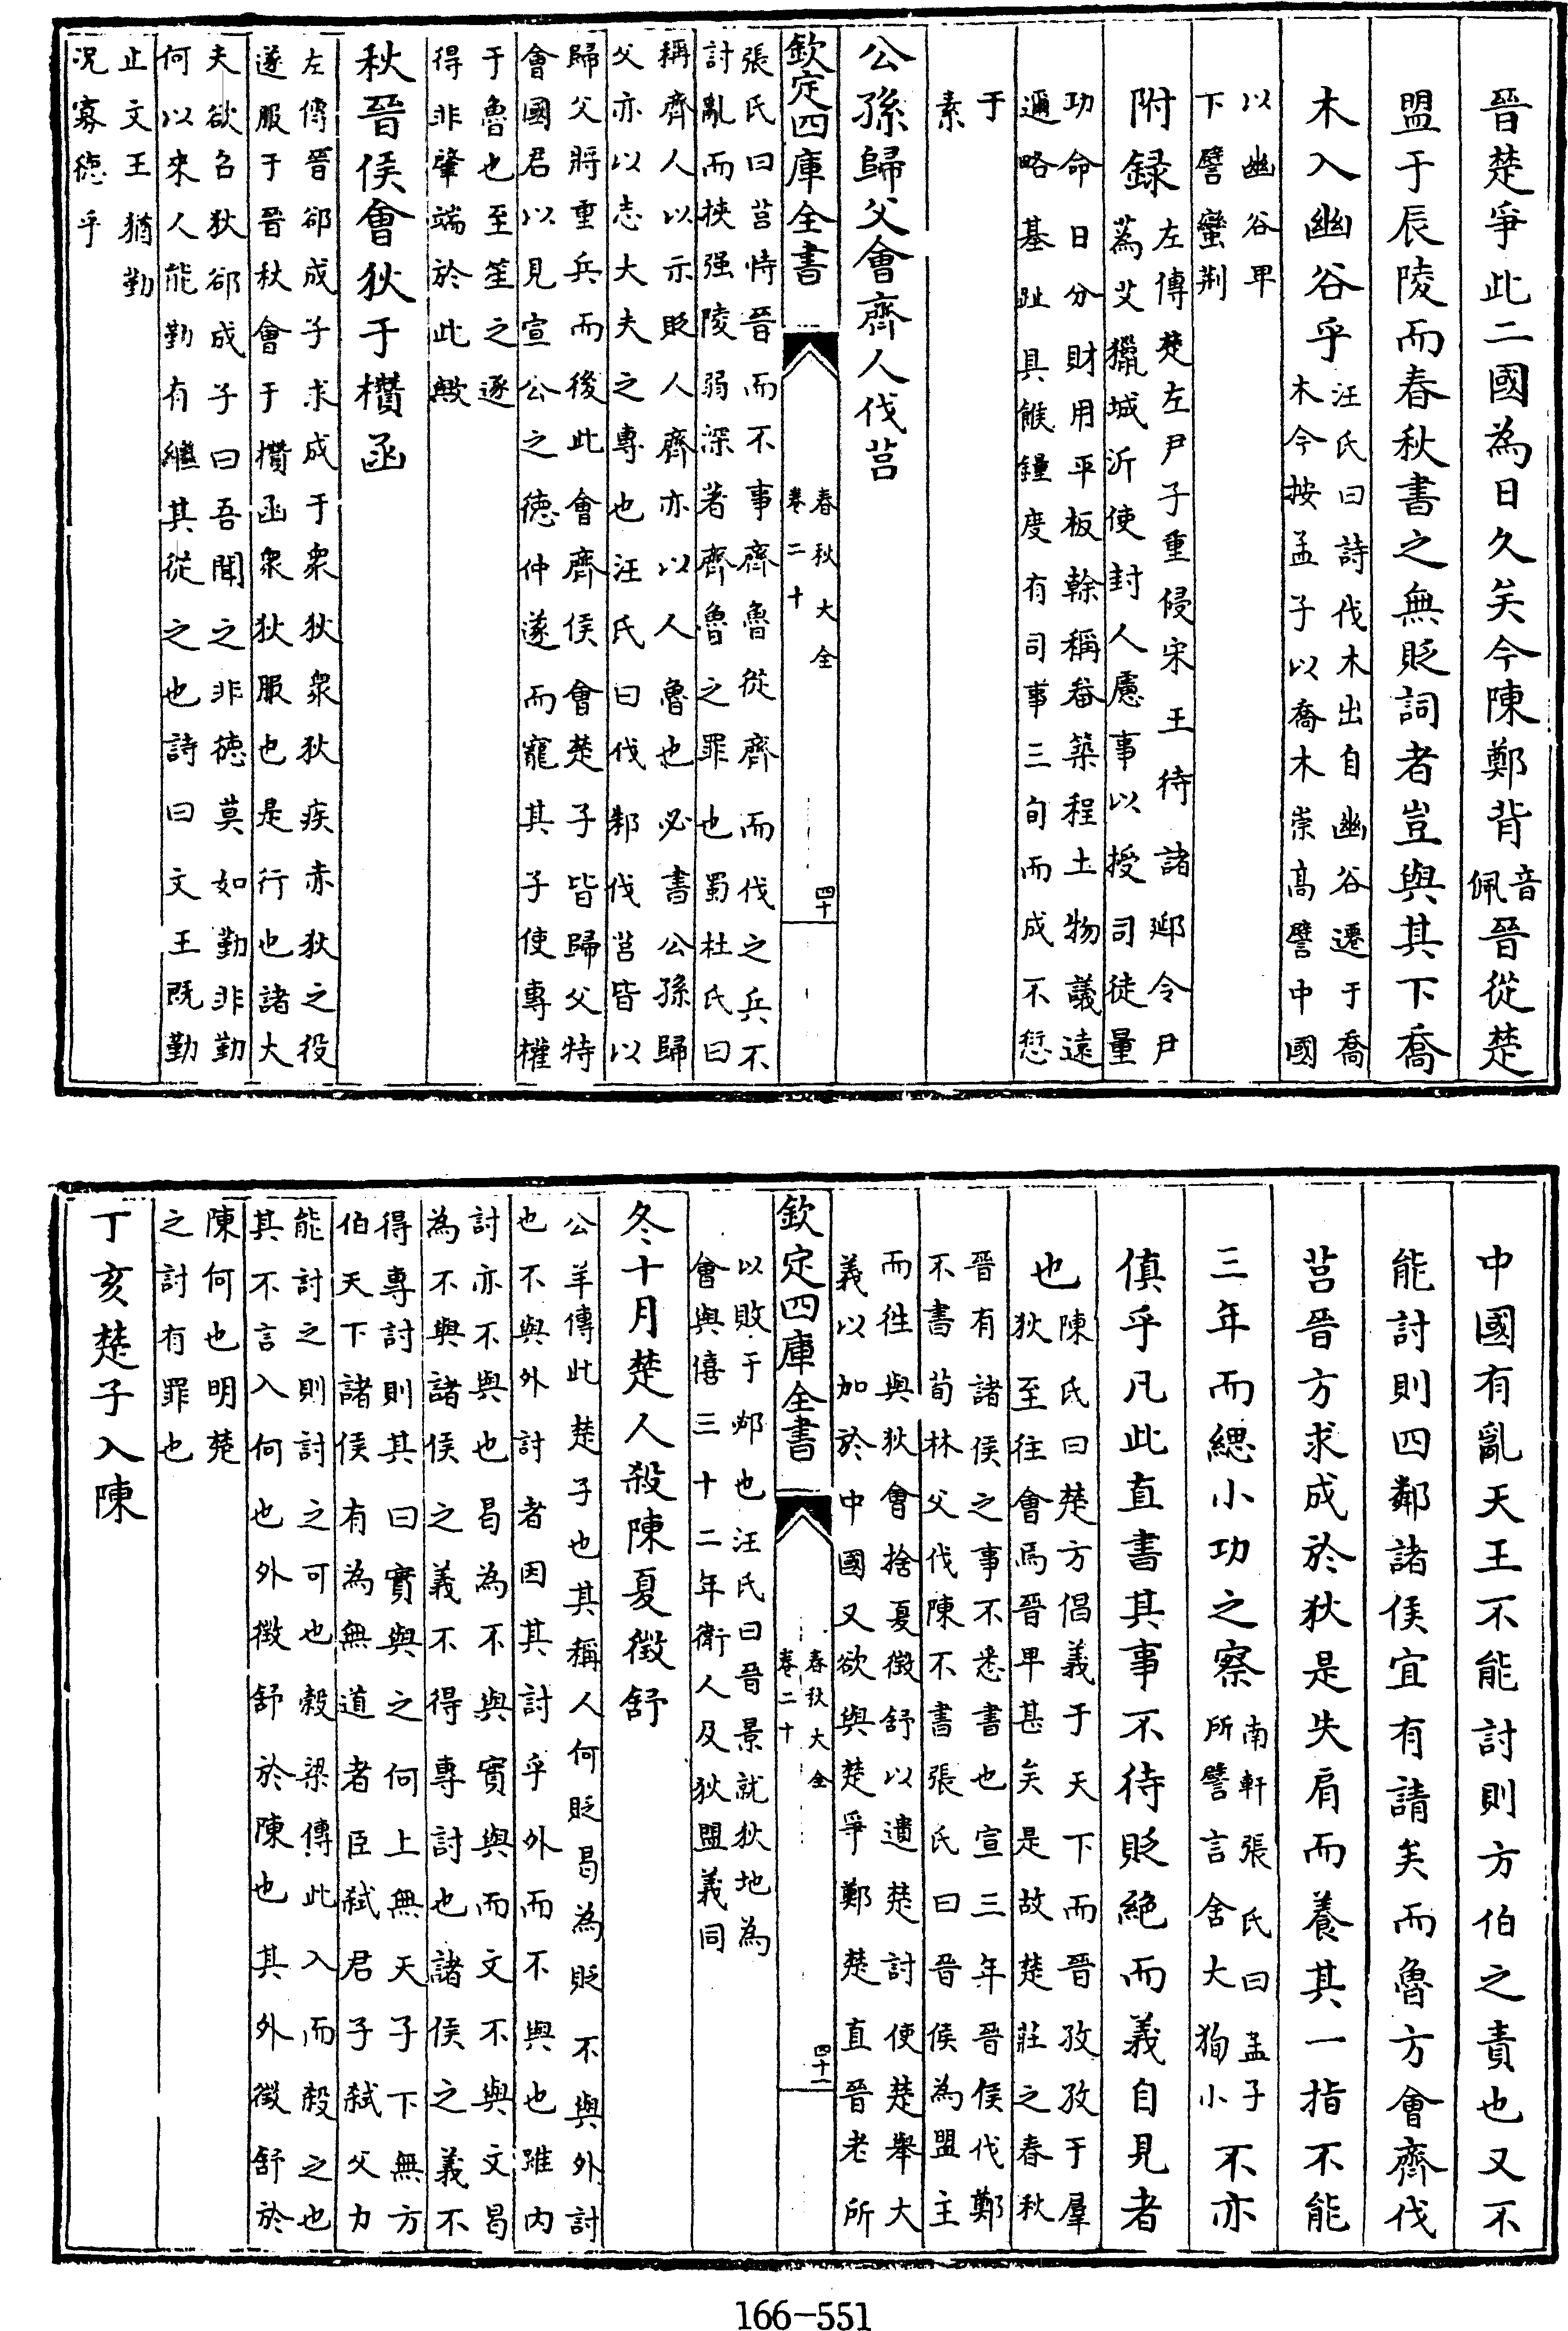 晉楚爭此二國為日久矣今陳鄭背音佩晉從楚
盟于辰陵而春秋書之無貶詞者豈與其下喬
木入幽谷乎汪氏曰詩伐木出自幽谷遷于喬木今按孟子以喬木崇高譬中國
以幽谷卑下譬蠻荆
附録左傳楚左尹子重侵宋王待諸郔令尹蒍艾獵城沂使封人慮事以授司徒量
功命日分財用平板榦稱畚築程土物議遠邇略基趾具餱糧度有司事三旬而成不愆
于素
公孫歸父會齊人伐莒
欽定四庫全書 春秋大全卷二十 四十
張氏曰莒恃晉而不事齊魯從齊而伐之兵不討亂而挾强陵弱深著齊魯之罪也蜀杜氏曰
稱齊人以示貶人齊亦以人魯也必書公孫歸父亦以志大夫之專也汪氏曰伐邾伐莒皆以
歸父將重兵而後此會齊侯會楚子皆歸父特會國君以見宣公之德仲遂而寵其子使專權
于魯也至笙之逐得非肇端於此歟
秋晉侯會狄于欑函
左傳晉郤成子求成于衆狄衆狄疾赤狄之役遂服于晉秋會于欑函衆狄服也是行也諸大
夫欲召狄郤成子曰吾聞之非德莫如勤非勤何以來人能勤有繼其從之也詩曰文王既勤
止文王猶勤况寡德乎
中國有亂天王不能討則方伯之責也又不
能討則四鄰諸侯宜有請矣而魯方會齊伐
莒晉方求成於狄是失肩而養其一指不能
三年而緦小功之察南軒張氏曰孟子所譬言舍大狥小不亦
傎乎凡此直書其事不待貶絶而義自見者
也陳氏曰楚方倡義于天下而晉孜孜于羣狄至往會焉晉卑甚矣是故楚莊之春秋
晉有諸侯之事不悉書也宣三年晉侯伐鄭不書荀林父伐陳不書張氏曰晉侯為盟主
而徃與狄會捨夏徵舒以遺楚討使楚舉大義以加於中國又欲與楚爭鄭楚直晉老所
欽定四庫全書 春秋大全卷二十 四十一
以敗于邲也汪氏曰晉景就狄地為會與僖三十二年衛人及狄盟義同
冬十月楚人殺陳夏徵舒
公羊傳此楚子也其稱人何貶曷為貶不與外討也不與外討者因其討乎外而不與也雖内
討亦不與也曷為不與實與而文不與文曷為不與諸侯之義不得專討也諸侯之義不
得專討則其曰實與之何上無天子下無方伯天下諸侯有為無道者臣弑君子弑父力
能討之則討之可也穀梁傳此入而殺之也其不言入何也外徵舒於陳也其外徵舒於
陳何也明楚之討有罪也
丁亥楚子入陳
166-551